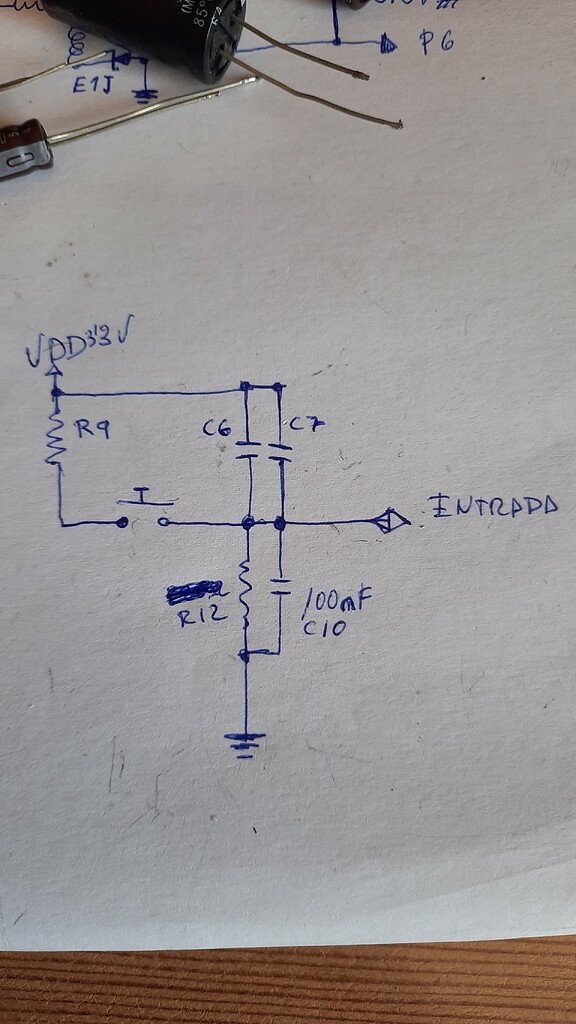 P6
E1J
VDD3'3V
R9
C6
C7
ENTRADA
R12
100mF
C10